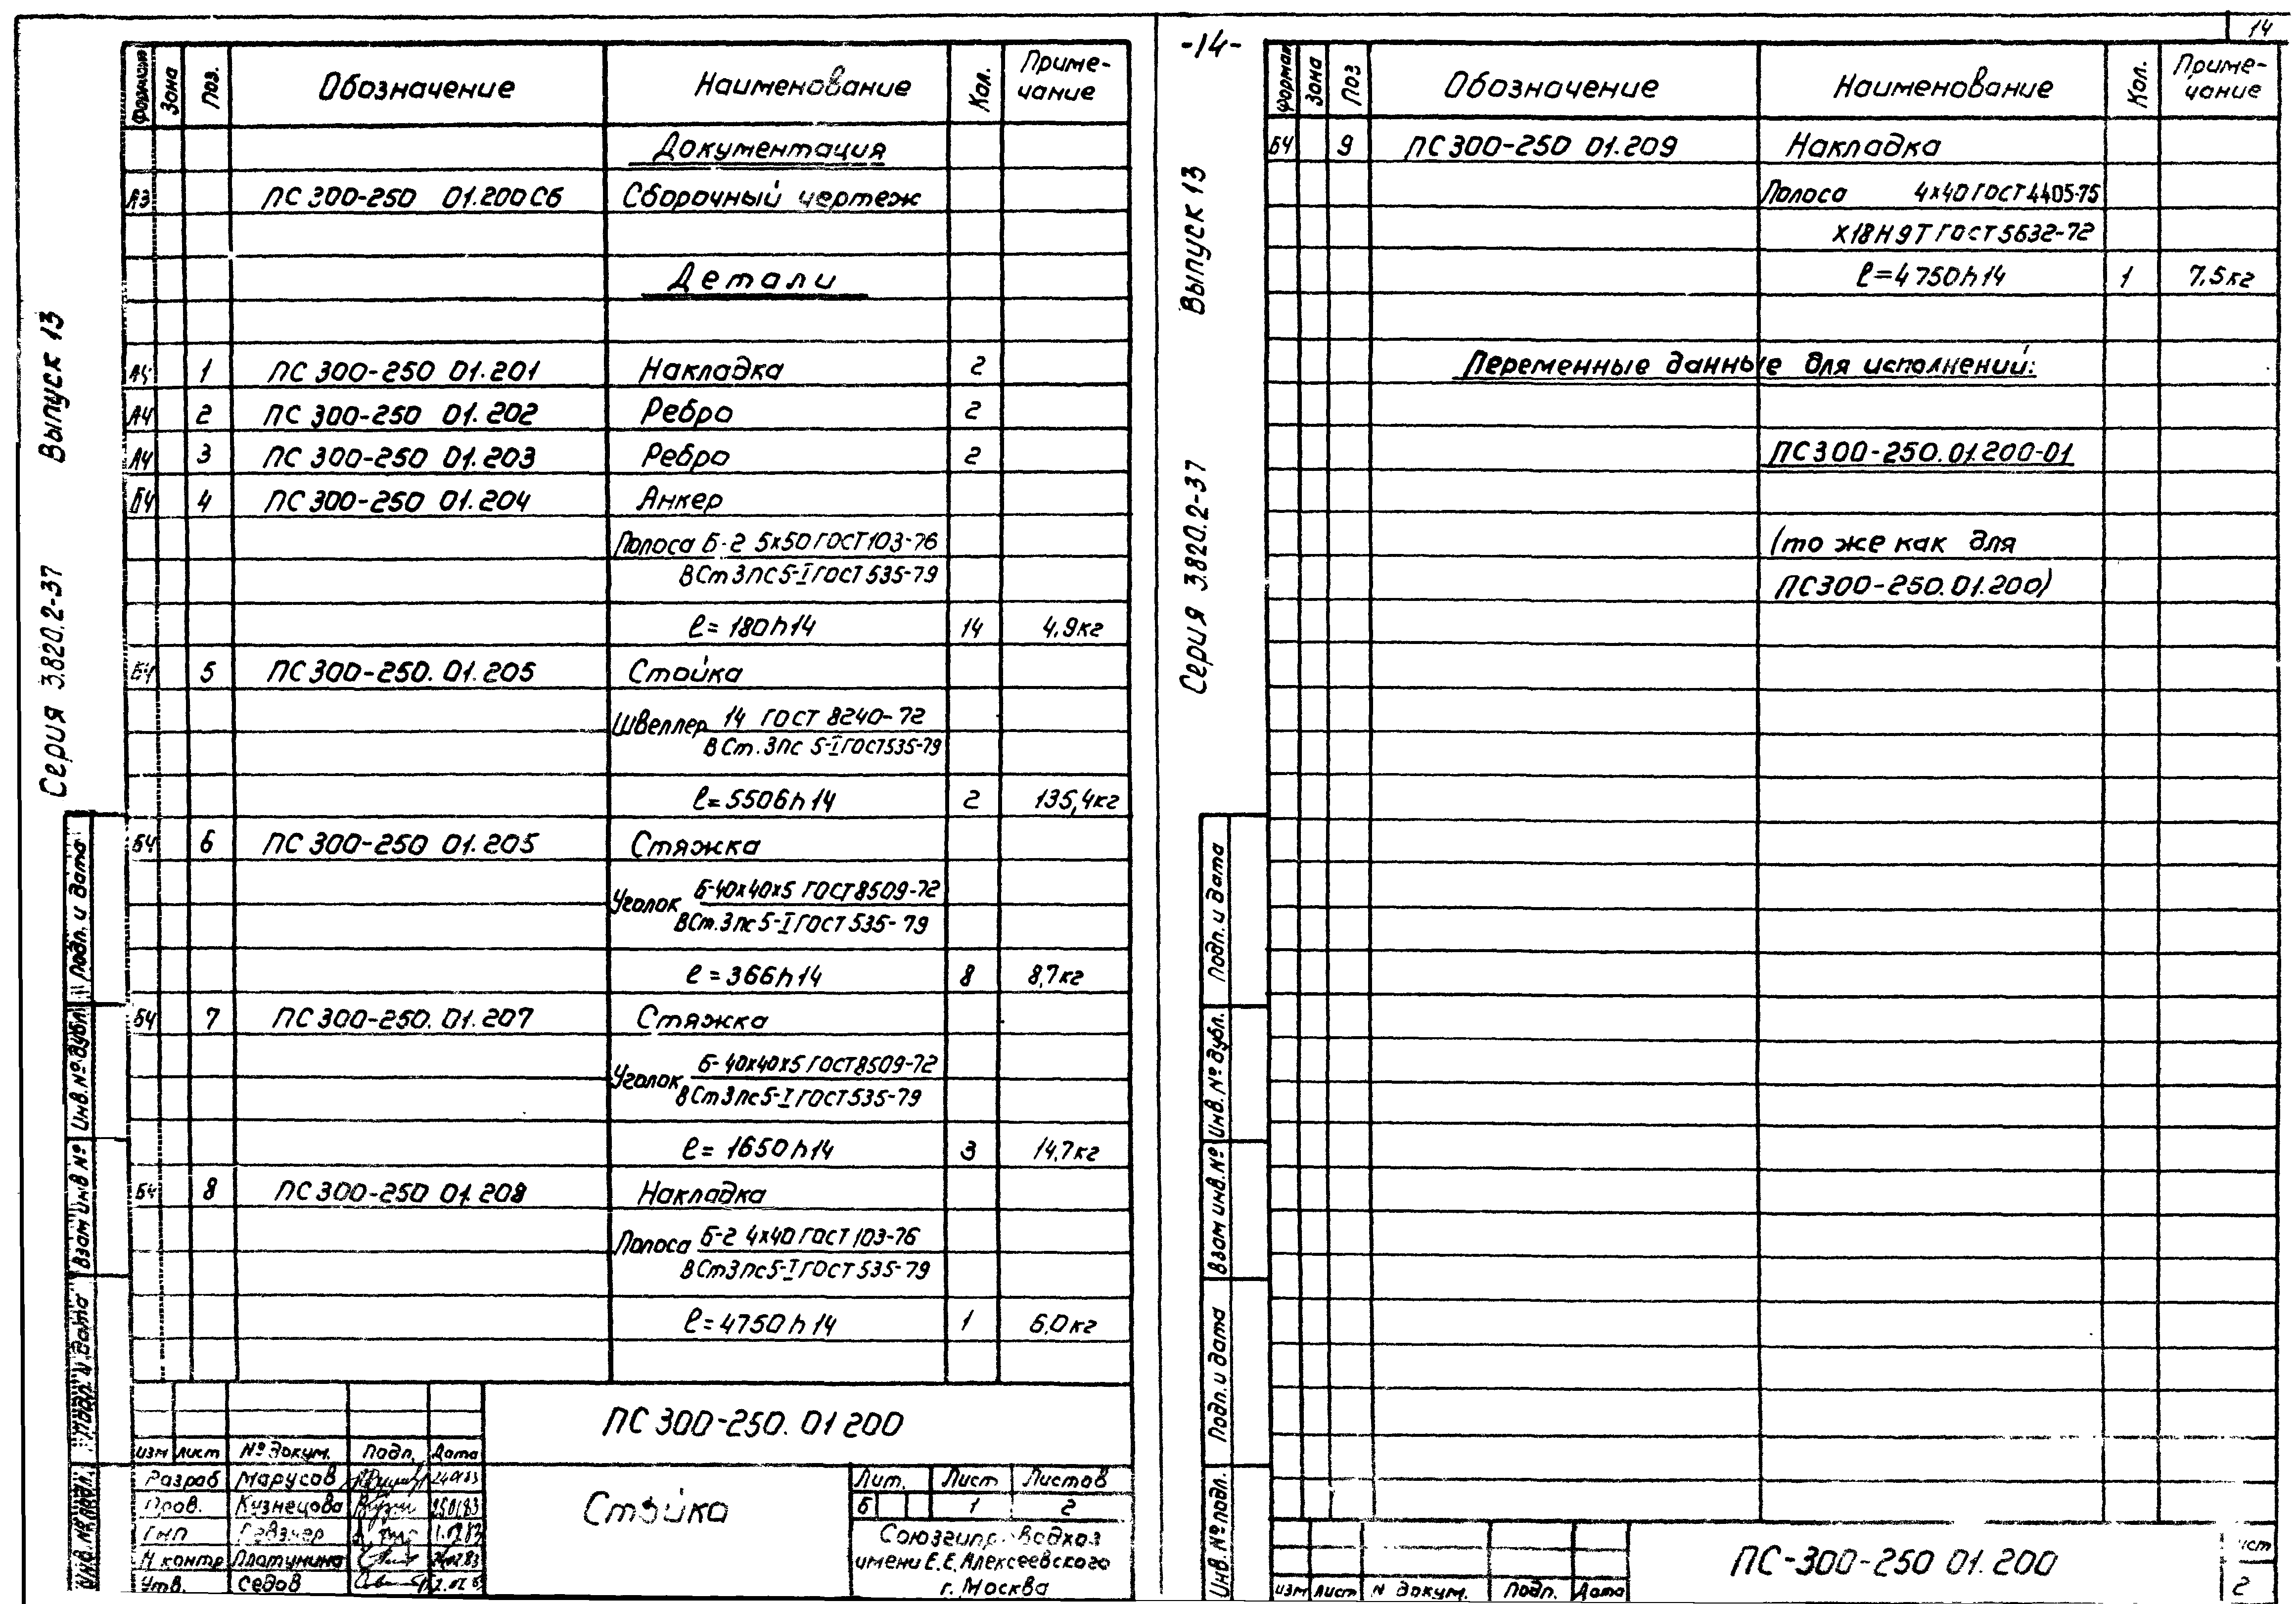 14
-14-
Серия 3.820.2-37 Выпуск 13
Формат Зона Поз. Обозначение Наименование Кол. Примечание
Документация
А3 ПС 300-250 01.200СБ Сборочный чертеж
Детали
А4 1 ПС 300-250 01.201 Накладка 2
А4 2 ПС 300-250 01.202 Ребро 2
А4 3 ПС 300-250 01.203 Ребро 2
БЧ 4 ПС 300-250 01.204 Анкер
Полоса Б-2 5х50 ГОСТ 103-76
ВСт3пс5-I ГОСТ 535-79
ℓ=180h14 14 4,9кг
БЧ 5 ПС 300-250.01.205 Стойка
Швеллер 14 ГОСТ 8240-72
ВСт.3пс 5-I ГОСТ 535-79
ℓ=5506h14 2 135,4кг
БЧ 6 ПС 300-250 01.205 Стяжка
Уголок Б-40х40х5 ГОСТ 8509-72
ВСт.3пс5-I ГОСТ 535-79
ℓ=366h14 8 8,7кг
БЧ 7 ПС 300-250.01.207 Стяжка
Уголок Б-40х40х5 ГОСТ 8509-72
ВСт3пс5-I ГОСТ 535-79
ℓ=1650h14 3 14,7кг
БЧ 8 ПС 300-250 01.208 Накладка
Полоса Б-2 4х40 ГОСТ 103-76
ВСт3пс5-I ГОСТ 535-79
ℓ=4750h14 1 6,0кг
Подп. и дата
Инв.№ дубл.
Взам инв №
Подп. и дата
Инв.№ подл.
ПС 300-250.01 200
изм лист № докум. Подп. Дата
Разраб Марусов
Пров. Кузнецова
ГИП
Н контр Платунина
Утв. Седов
Стойка
Лит. Лист Листов
Б 1 2
Союзгипроводхоз
имени Е.Е.Алексеевского
г. Москва
Серия 3.820.2-37 Выпуск 13
Формат Зона Поз Обозначение Наименование Кол. Примечание
БЧ 9 ПС 300-250 01.209 Накладка
Полоса 4х40 ГОСТ 4405-75
Х18Н9Т ГОСТ 5632-72
ℓ=4750h14 1 7,5кг
Переменные данные для исполнений:
ПС300-250.01.200-01
(то же как для
ПС300-250.01.200)
Подп. и дата
Инв.№ дубл.
Взам инв.№
Подп. и дата
Инв.№ подл.
изм лист N докум. Подп. Дата
ПС-300-250 01.200
Лист
2